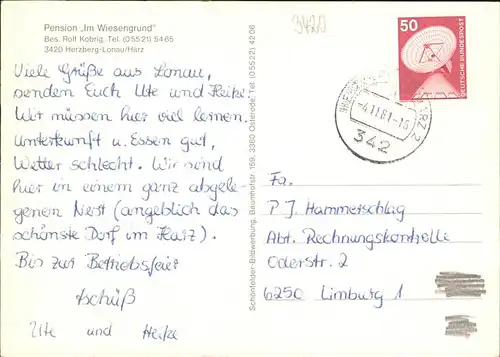 Pension „Im Wiesengrund"
Bes. Rolf Kobrig, Tel. (05521) 5465
3420 Herzberg-Lonau/Harz
Viele Grüße aus Lonau,
senden Euch Ute und Heike!
Wir müssen hier viel lernen.
Unterkunft u. Essen gut,
Wetter schlecht. Wir sind
hier in einem ganz abgele-
genen Nest (angeblich das
schönste Dorf im Harz).
Bis zur Betriebsfeier
tschüß
Ute und Heike
Schönfelder-Bildwerbung, Baumhofstr. 169, 3360 Osterode, Tel. (05522) 4206
3420
50
DEUTSCHE BUNDESPOST
HARZ 2
-4.11.81-16
342
Fa.
P J. Hammerschlag
Abt. Rechnungskontrolle
Oderstr. 2
6250 Limburg 1